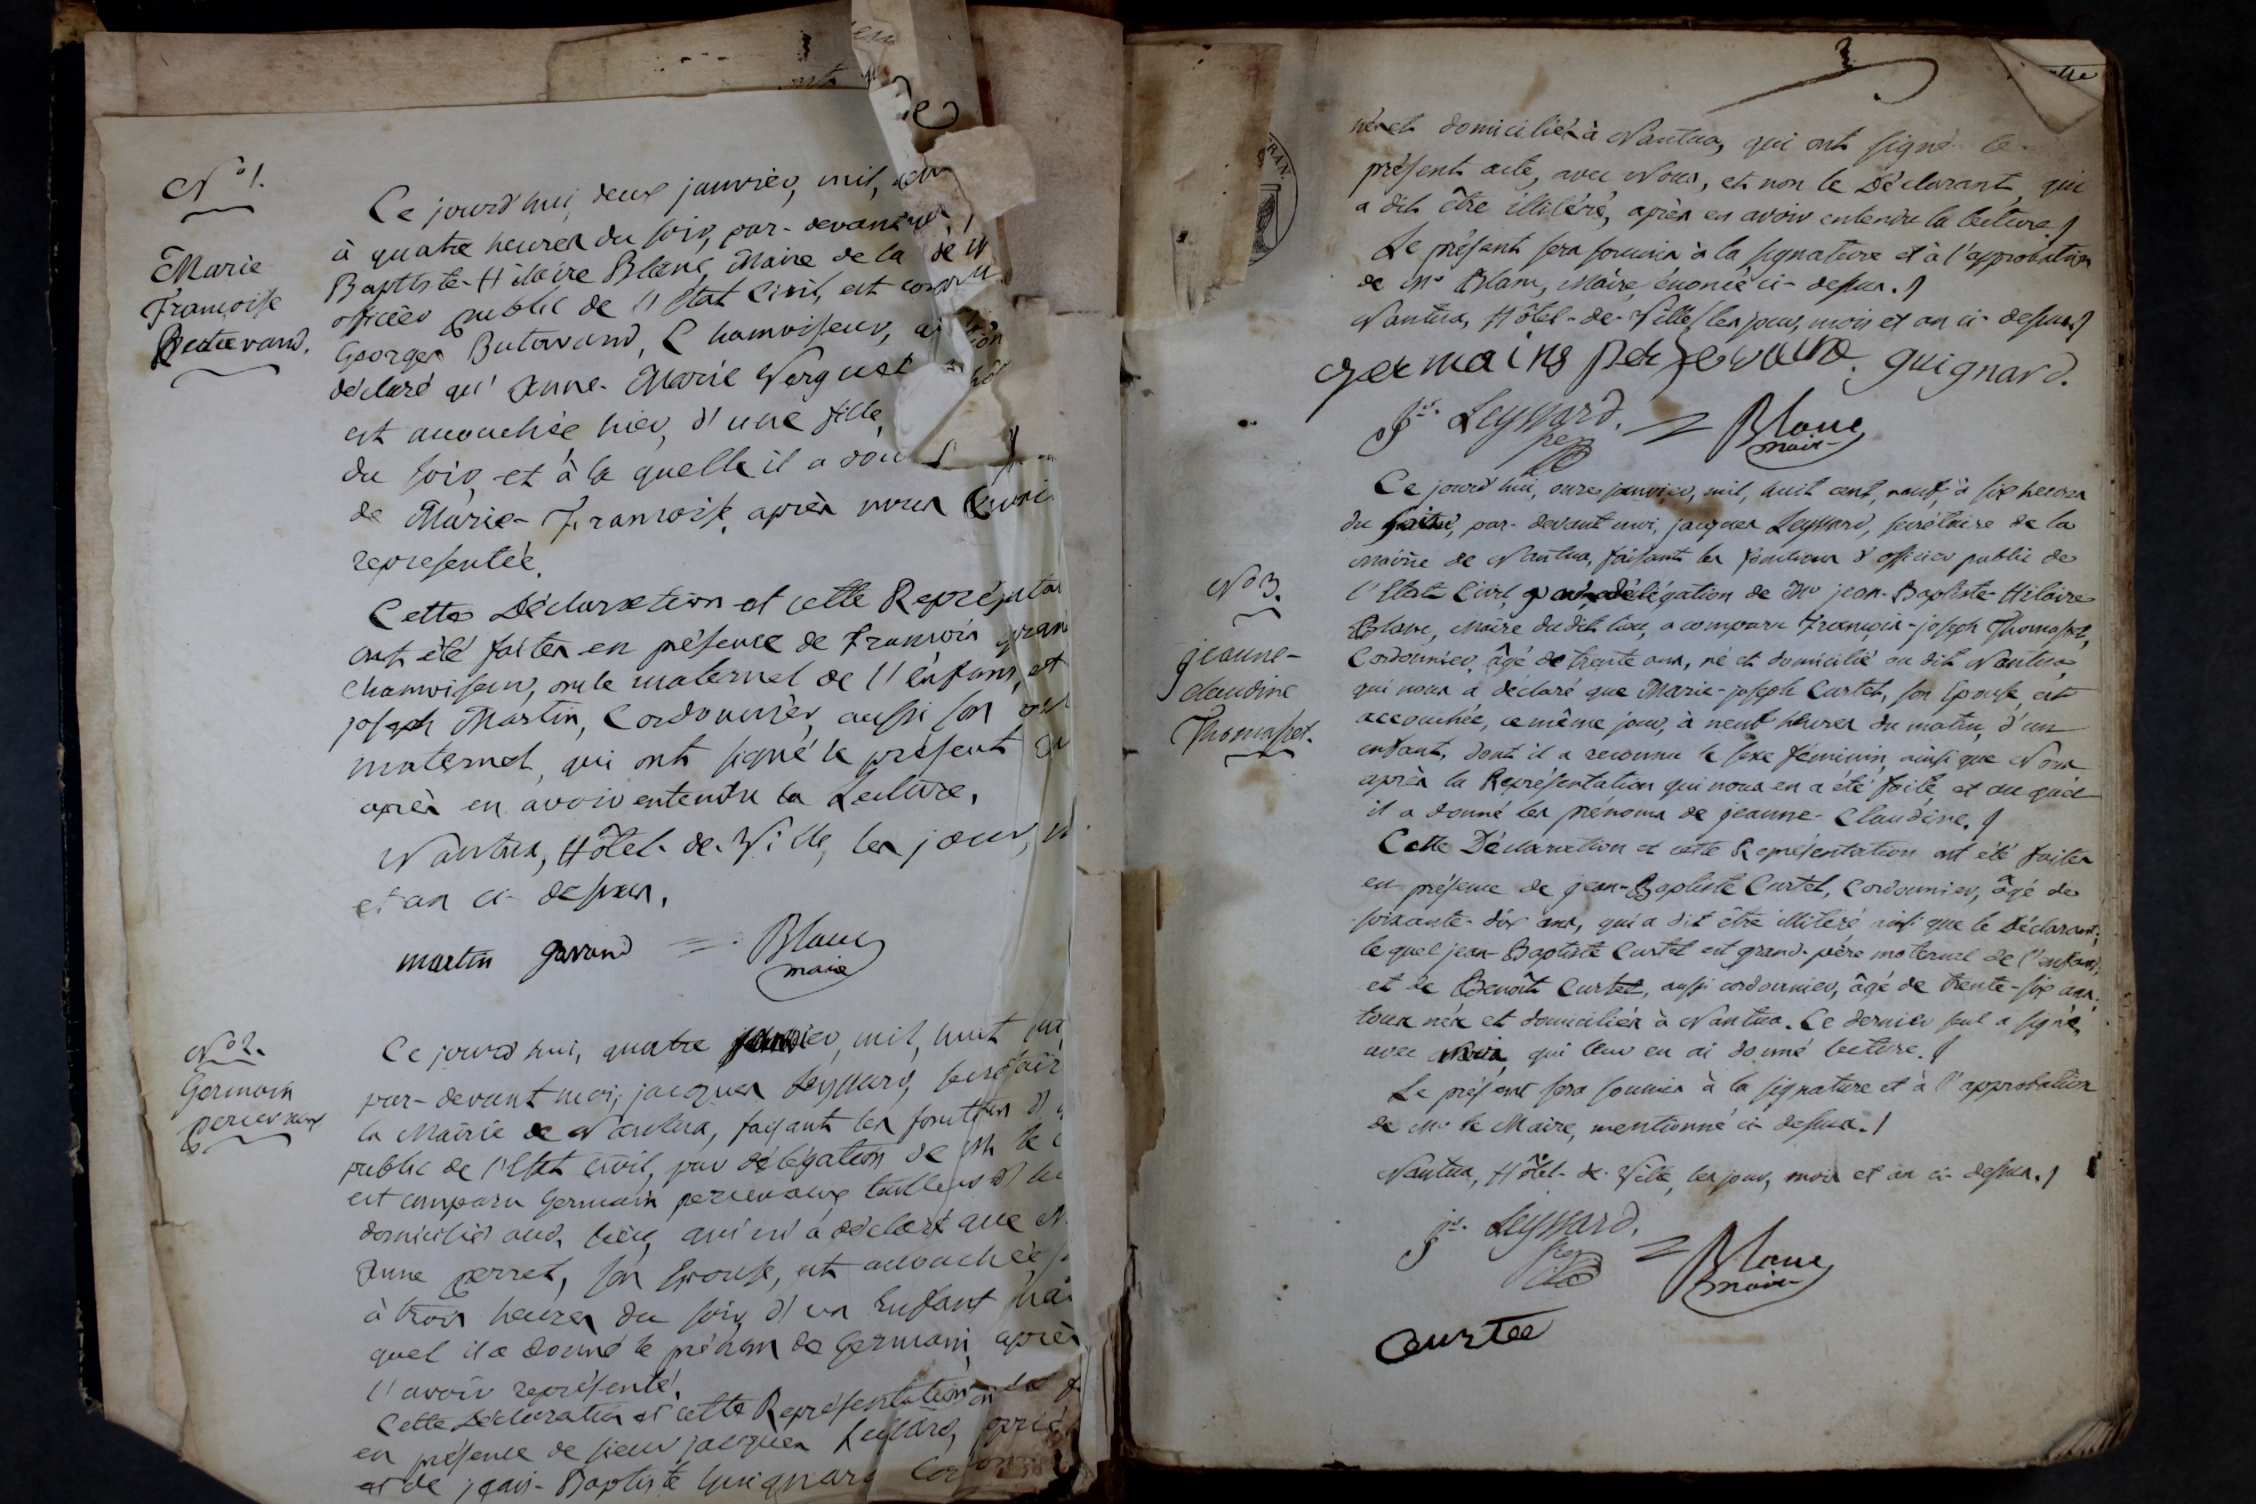 N° 1.
Marie
Françoise
Butavand.
Ce jourd'hui, deux janvier, mil,
à quatre heures du soir, par-devant
Baptiste-Hilaire Blanc, Maire de la
officier public de l'Etat Civil, est comparu
Georges Butavand, Chamoiseur,
déclaré qu'Anne-Marie
est accouchée hier, d'une fille,
du soir, et à la quelle il a
de Marie-Françoise, après nous l'avoir
representée.
Cette Déclaration et cette
ont été faites en présence de François
chamoiseur, oncle maternel de l'enfant, et
joseph Martin, Cordonnier, aussi son
maternel, qui ont signé le présent
après en avoir entendu la Lecture.
Nantua, Hôtel-de-Ville, les jour,
et an ci-dessus.
martin gavand = Blanc
maire
N° 2.
Germain
Ce jourd'hui, quatre janvier, mil, huit
par-devant moi, jacques Leyssard,
la Mairie de Nantua, faisant les fonctions
public de l'Etat Civil, par délégation de
est comparu Germain
domicilié aud. lieu, qui m'a déclaré que
Anne perret, son Epouse, est accouchée
à trois heures du soir, d'un Enfant
quel il a donné le prénom de Germain, après
l'avoir représenté.
Cette Déclaration et cette Représentation
en présence de sieur jacques
et de jean-Baptiste Guignard
3
nés et domiciliés à Nantua, qui ont signé le
présent acte, avec Nous, et non le Déclarant, qui
a dit être illitéré, après en avoir entendu la lecture.
Le présent sera soumis à la signature et à l'approbation
de Mr Blanc, Maire, énoncé ci-dessus.
Nantua, Hôtel-de-Ville, les jour, mois et an ci-dessus
germains guignard.
Js. Leyssard. = Blanc
maire
N° 3.
jeanne-
claudine
Thomasset.
Ce jourd'hui, onze janvier, mil, huit cent, neuf, à six heures
du par-devant moi, jacques Leyssard, secrétaire de la
Mairie de Nantua, faisant les fonctions d'officier public de
l'Etat Civil, par délégation de Mr jean-Baptiste-Hilaire
Blanc, Maire dudit lieu, a comparu François-joseph Thomasset,
Cordonnier, âgé de trente ans, né et domicilié au dit Nantua,
qui nous a déclaré que Marie-joseph Curtet, son Epouse, est
accouchée, ce même jour, à neuf heures du matin, d'un
enfant, dont il a reconnu le sexe féminin, ainsi que Nous
après la Représentation qui nous en a été faite et auquel
il a donné les prénoms de jeanne-Claudine.
Cette Déclaration et cette Représentation ont été faites
en présence de jean-Baptiste Curtet, Cordonnier, âgé de
soixante-dix ans, qui a dit être illiteré ainsi que le Déclarant;
le quel jean-Baptiste Curtet est grand-père maternel de l'enfant,
et de Benoît Curtet, aussi cordonnier, âgé de trente-six ans.
tous nés et domiciliés à Nantua. Ce dernier seul a signé,
avec qui leur en ai donné lecture.
Le présent sera soumis à la signature et à l'approbation
de Mr le Maire, mentionné ci-dessus.
Nantua, Hôtel-de-Ville, les jour, mois et an ci-dessus.
js. Leyssard. = Blanc
maire
Curtee